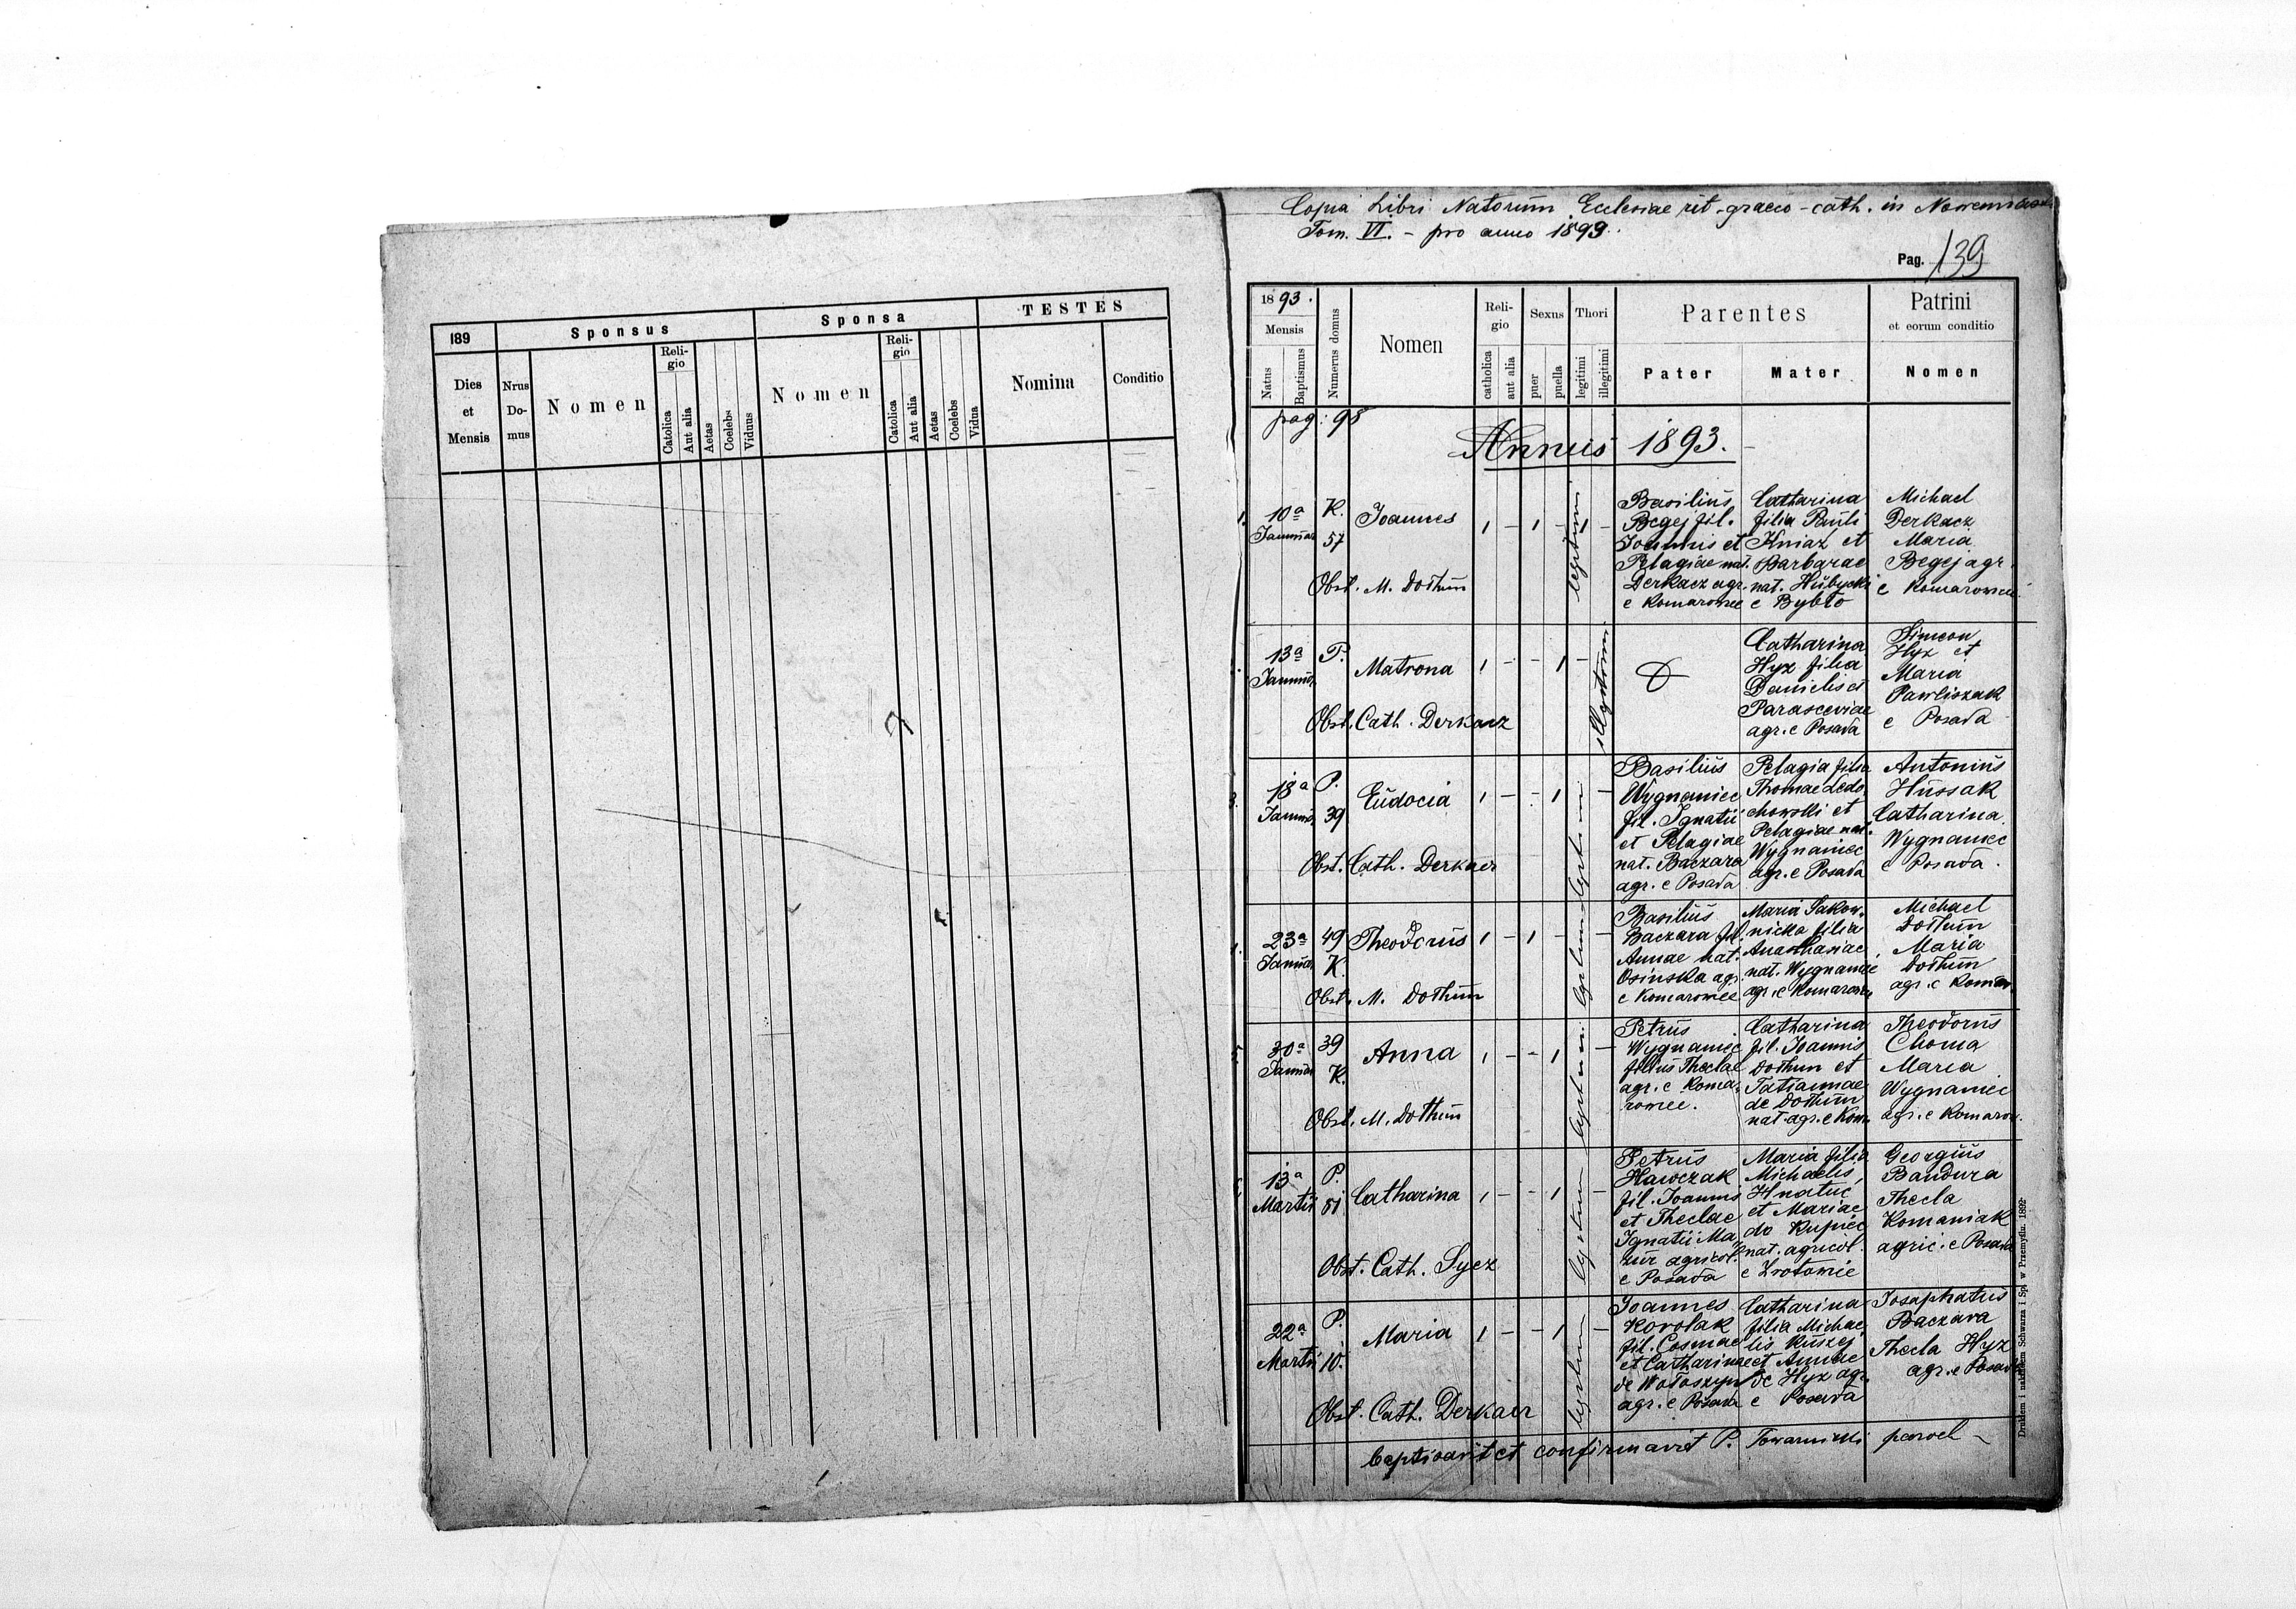 189
Sponsus
Sponsa
TESTES
Dies et Mensis
Nrus Do-mus
Nomen
Reli-gio
Catolica
Aut alia
Aetas
Coelebs
Viduus
Nomen
Reli-gio
Catolica
Aut alia
Aetas
Coelebs
Vidua
Nomina
Conditio
Copia Libri Natorum Ecclesiae rit. graeco-cath. in
Tom. VI. - pro anno 1893.
Pag. 139
1893.
Mensis
Natus
Baptismus
Numerus domus
Nomen
Reli-gio
catholica
aut alia
Sexus
puer
puella
Thori
legitimi
illegitimi
Parentes
Pater
Mater
Patrini
et eorum conditio
Nomen
pag: 98
Annus 1893.
1.
10a
K.
57
Joannes
1 - 1 - 1 -
legitimi
Basilius
Begej fil.
Joannis et
Pelagiae nat.
Derkacz agr.
e Komarowce
Catharina
filia Pauli
Kniaz et
Barbarae
nat. Hubycki
e Bybło
Michael
Derkacz
Maria
Begej agr.
e
Obst. M. Dothun
13a
P.
Matrona
1 - - 1 -
Catharina
Hyz filia
Danielis et
Parasceviae
agr. e Posada
Simeon
Hyz et
Maria
Pawliszak
e Posada
Obst. Cath. Derkacz
3.
18a
P.
39
Eudocia
1 - - 1 -
Basilius
Wygnaniec
fil. Ignatii
et Pelagiae
nat. Baczara
agr. e Posada
Pelagia filia
Thomae Ledo
chowski et
Pelagiae nat.
Wygnaniec
agr. e Posada
Antonius
Hussak
Catharina
Wygnaniec
e Posada.
Obst. Cath. Derkacz
23a
49
K.
Theodorus
1 - 1 - -
Basilius
Baczara fil.
Annae nat.
Osinska agr.
e Komarowce
Maria Sakow
nicka filia
Anasthasiae
nat. Wygnaniec
agr. e
Michael
Dothun
Maria
Dothun
agr. e Komar.
Obst. M. Dothun
30a
39
K.
Anna
1 - - 1 -
Petrus
Wygnaniec
filius Theclae
agr. e Koma-
rowce.
Catharina
fil. Joannis
Dothun et
Tatiannae
de Dothun
nat. agr. e Kom.
Theodorus
Choma
Maria
Wygnaniec
agr. e Komarow.
Obst. M. Dothun
13a
Martii
P.
51
Catharina
1 - - 1 -
Petrus
Hawczak
fil. Joannis
et Theclae
Ignatii Ma-
zur agricol.
e Posada
Maria filia
Michaelis
Hnatuc
et Mariae
de Kupiec
nat. agricol.
e
Georgius
Bandura
Thecla
Romaniak
agric. e Posada
Obst. Cath. Sycz
22a
Martii
P.
10.
Maria
1 - - 1 -
Joannes
Korolak
fil. Cosmae
et Catharinae
de Wołoszyn
agr. e Posada
Catharina
filia Michae
lis Kuszej
et Annae
de Hyz agr.
e Posada
Josaphatus
Baczara
Thecla Hyz
agr. e Posada
Obst. Cath. Derkacz
baptisavit et confirmavit P.
Drukiem i nakładem Schwarza i Spł. w Przemyślu. 1892